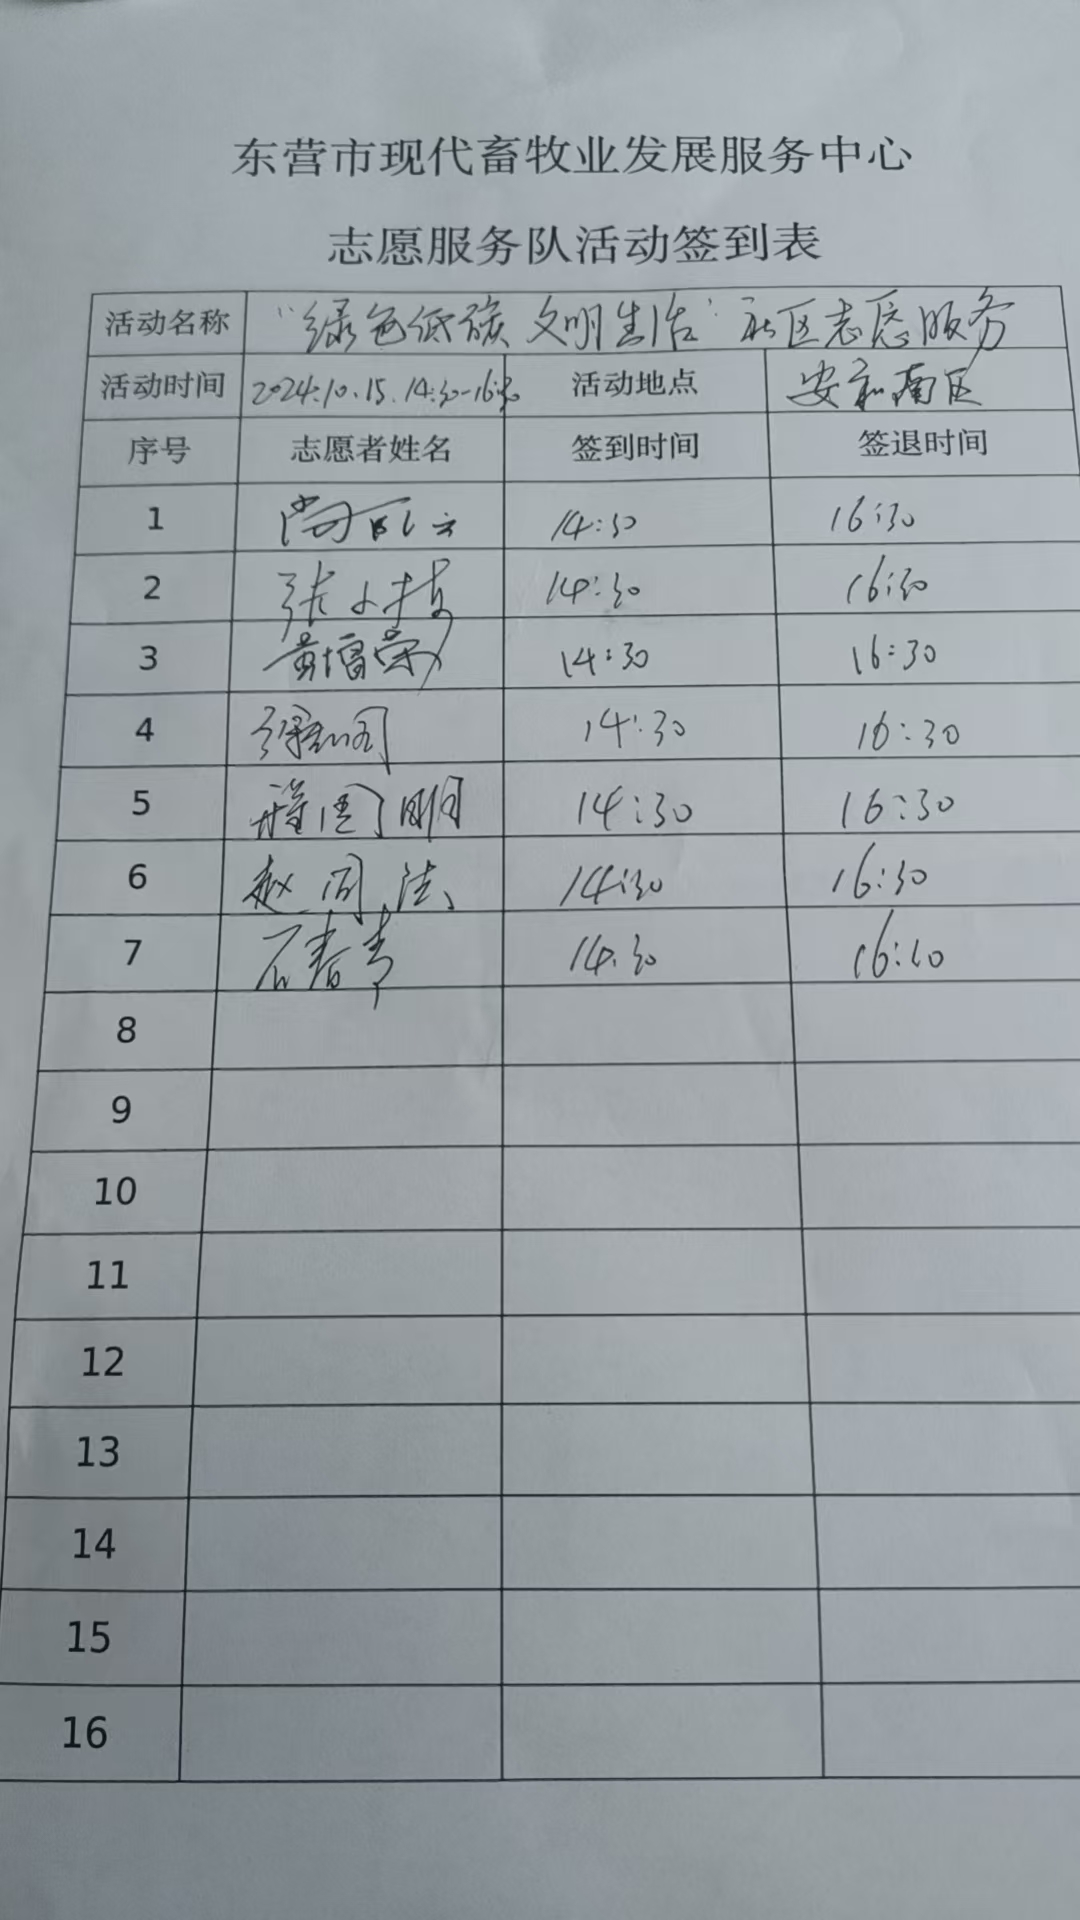 东营市现代畜牧业发展服务中心
志愿服务队活动签到表
活动名称 “绿色低碳 文明生活”社区志愿服务
活动时间 2024.10.15. 14:30-16:30 活动地点 安和南区
序号 志愿者姓名 签到时间 签退时间
1 14:30 16:30
2 张小枝 14:30 16:30
3 黄增荣 14:30 16:30
4 14:30 16:30
5 蒋国明 14:30 16:30
6 赵同法 14:30 16:30
7 石春青 14:30 16:30
8
9
10
11
12
13
14
15
16